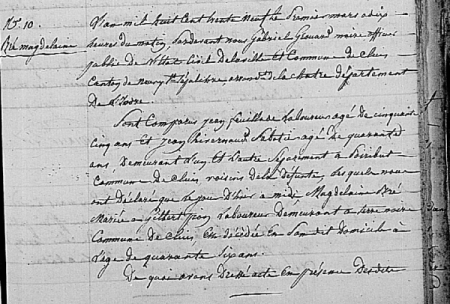 No. 10.
Bié magdelaine
L'an mil huit cent trente neuf le premier mars à dix
heures du matin, pardevant nous Gabriel maire officier
public de l'état civil de la ville et Commune de Cluis
Canton de neuvy St Sépulcre, arrondt. de la chatre département
de l'Indre.
Sont Comparus jean laboureur agé de cinquante
cinq ans Et jean agé de quarante
ans, Demeurant d'un et l'autre Séparement à
Commune de Cluis, voisins de la défunte, lesquels nous
ont déclaré que le jour d'hier à midi Magdelaine Bié
Mariée à Gilbert jean laboureur Demeurant à terre noire
Commune de Cluis, Est décédée En son dit domicile à
l'age de quarante six ans.
De quoi avons Dressé acte En présence